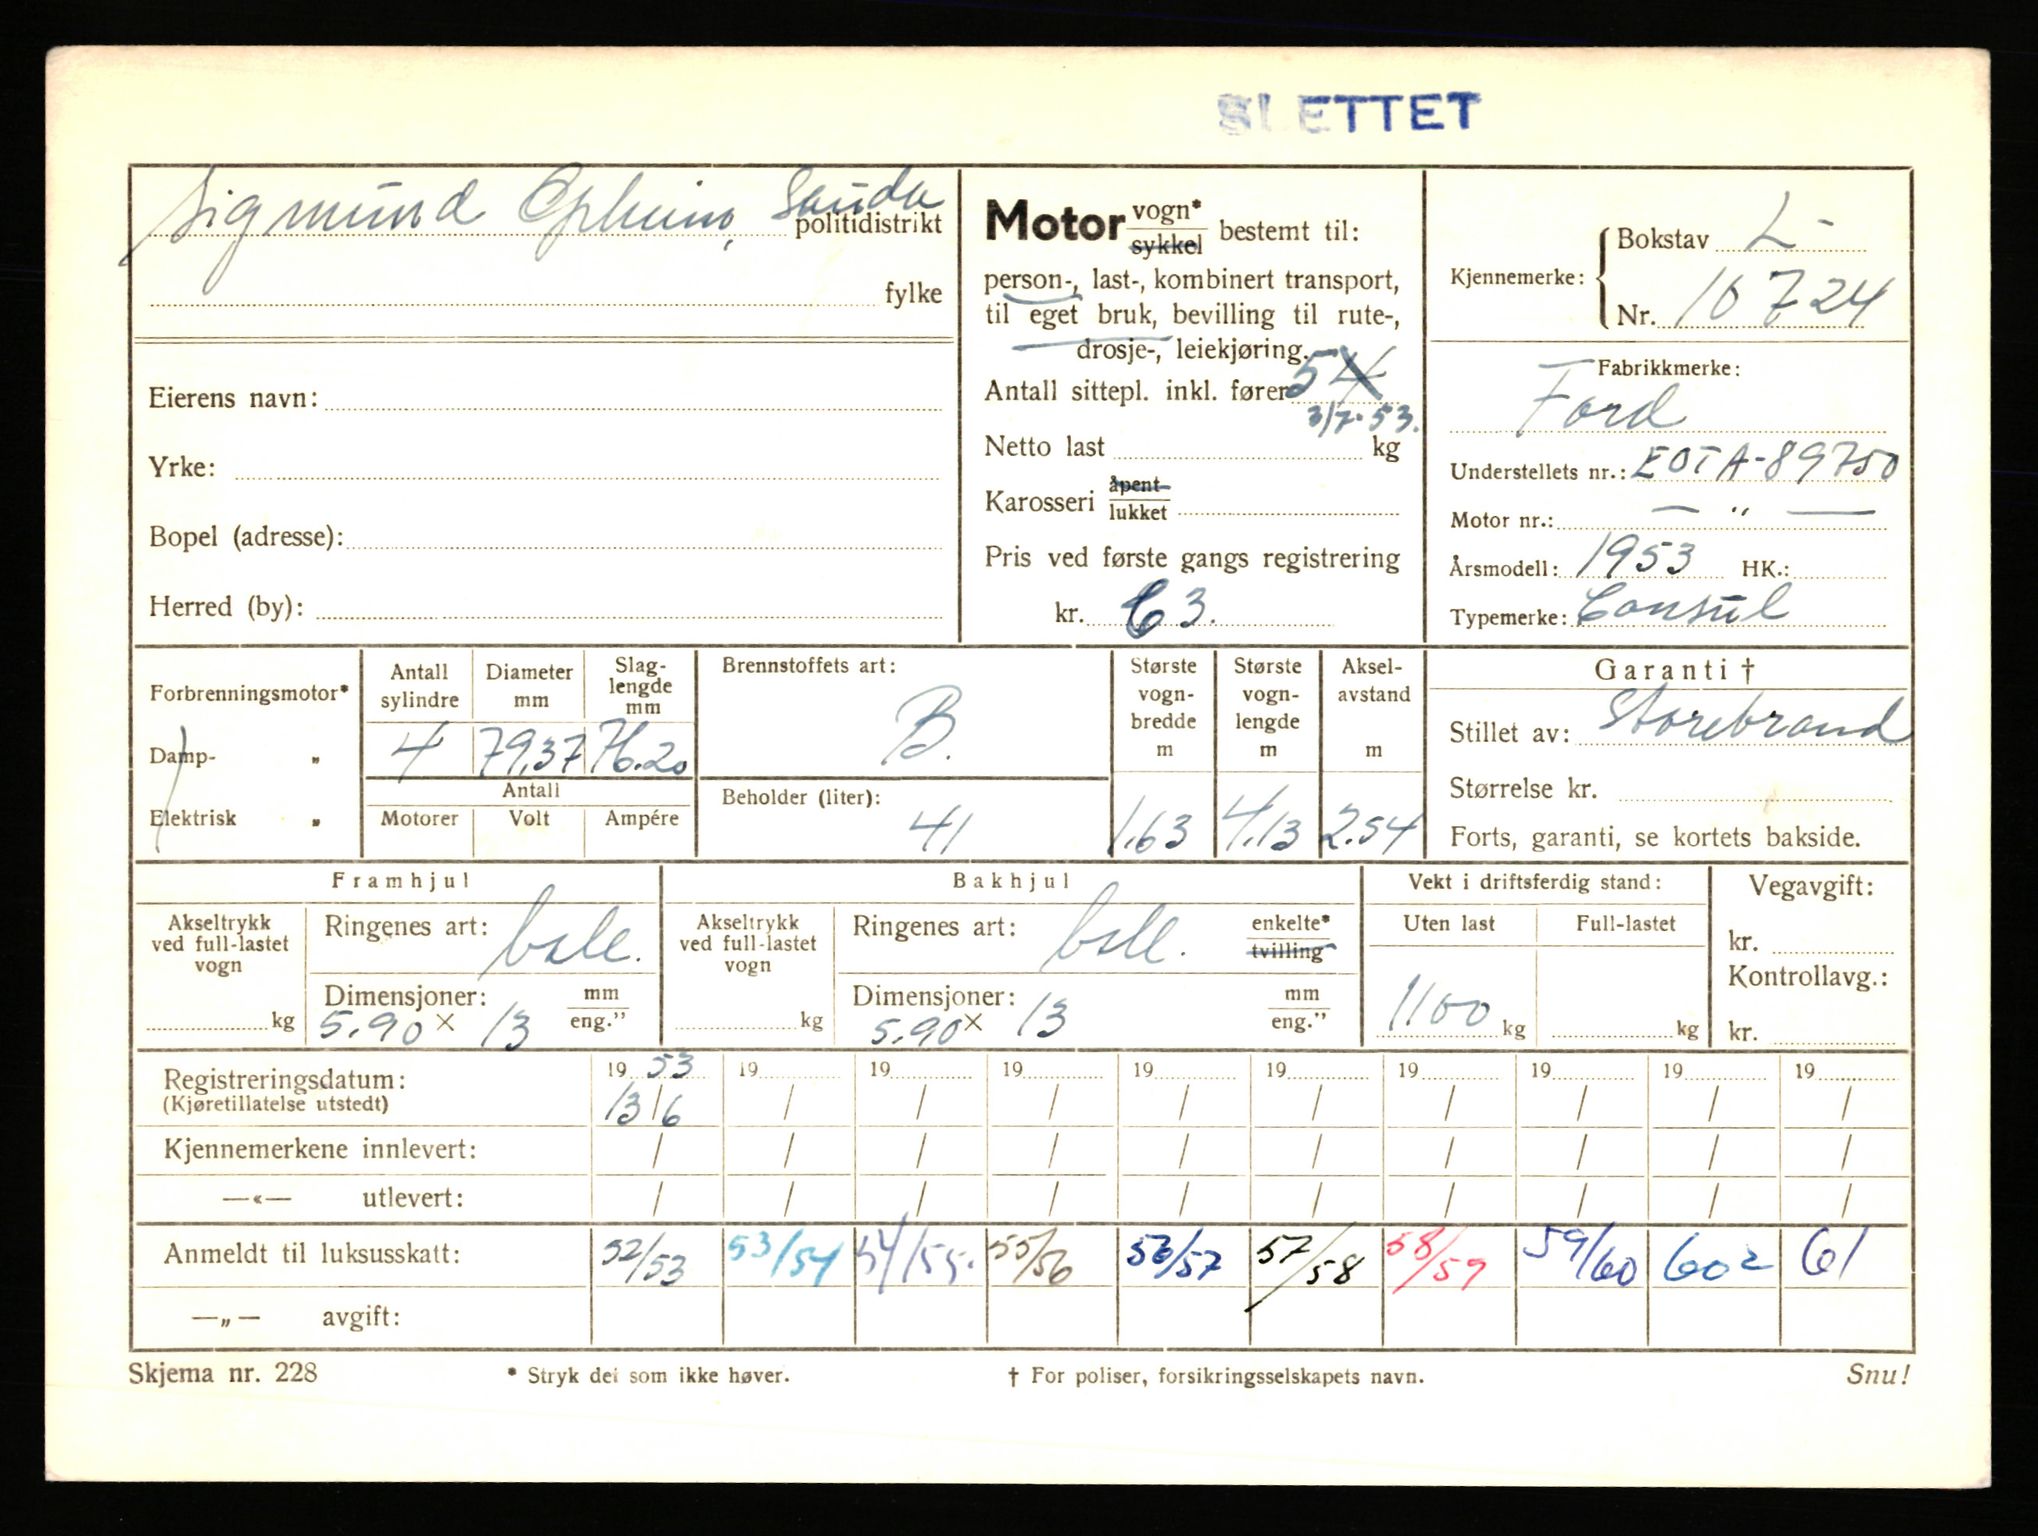 SLETTET
Sigmund Opheim, Sauda
politidistrikt
fylke
Eierens navn:
Yrke:
Bopel (adresse):
Herred (by):
Motor vogn* sykkel bestemt til:
person-, last-, kombinert transport,
til eget bruk, bevilling til rute-,
drosje-, leiekjøring.
Antall sittepl. inkl. fører 5 4
3/7-53.
Netto last kg
Karosseri åpent lukket
Pris ved første gangs registrering
kr. C3.
Kjennemerke: Bokstav L-
Nr. 10724
Fabrikkmerke:
Ford
Understellets nr.: EOTA-89750
Motor nr.: — " —
Årsmodell: 1953 HK.:
Typemerke: Consul
Forbrenningsmotor*
Damp- "
Elektrisk "
Antall sylindre Diameter mm Slag-lengde mm
4 79,37 76.20
Antall
Motorer Volt Ampére
Brennstoffets art:
B.
Beholder (liter):
41
Største vogn-bredde m Største vogn-lengde m Aksel-avstand m
1.63 4.13 2.54
Garanti †
Stillet av: Storebrand
Størrelse kr.
Forts, garanti, se kortets bakside.
Framhjul
Akseltrykk ved full-lastet vogn
kg
Ringenes art: ball.
Dimensjoner: mm eng."
5.90 x 13
Bakhjul
Akseltrykk ved full-lastet vogn
kg
Ringenes art: ball. enkelte* tvilling
Dimensjoner: mm eng."
5.90 x 13
Vekt i driftsferdig stand:
Uten last Full-lastet
1100 kg kg
Vegavgift:
kr.
Kontrollavg.:
kr.
Registreringsdatum: 19 53 19 19 19 19 19 19 19 19 19
(Kjøretillatelse utstedt) 13/6 / / / / / / / / /
Kjennemerkene innlevert: / / / / / / / / / /
—«— utlevert: / / / / / / / / / /
Anmeldt til luksusskatt: 52/53 53/54 54/55. 55/56 56/57 57/58 58/59 59/60 602 61
—„— avgift:
Skjema nr. 228 * Stryk det som ikke høver. † For poliser, forsikringsselskapets navn. Snu!